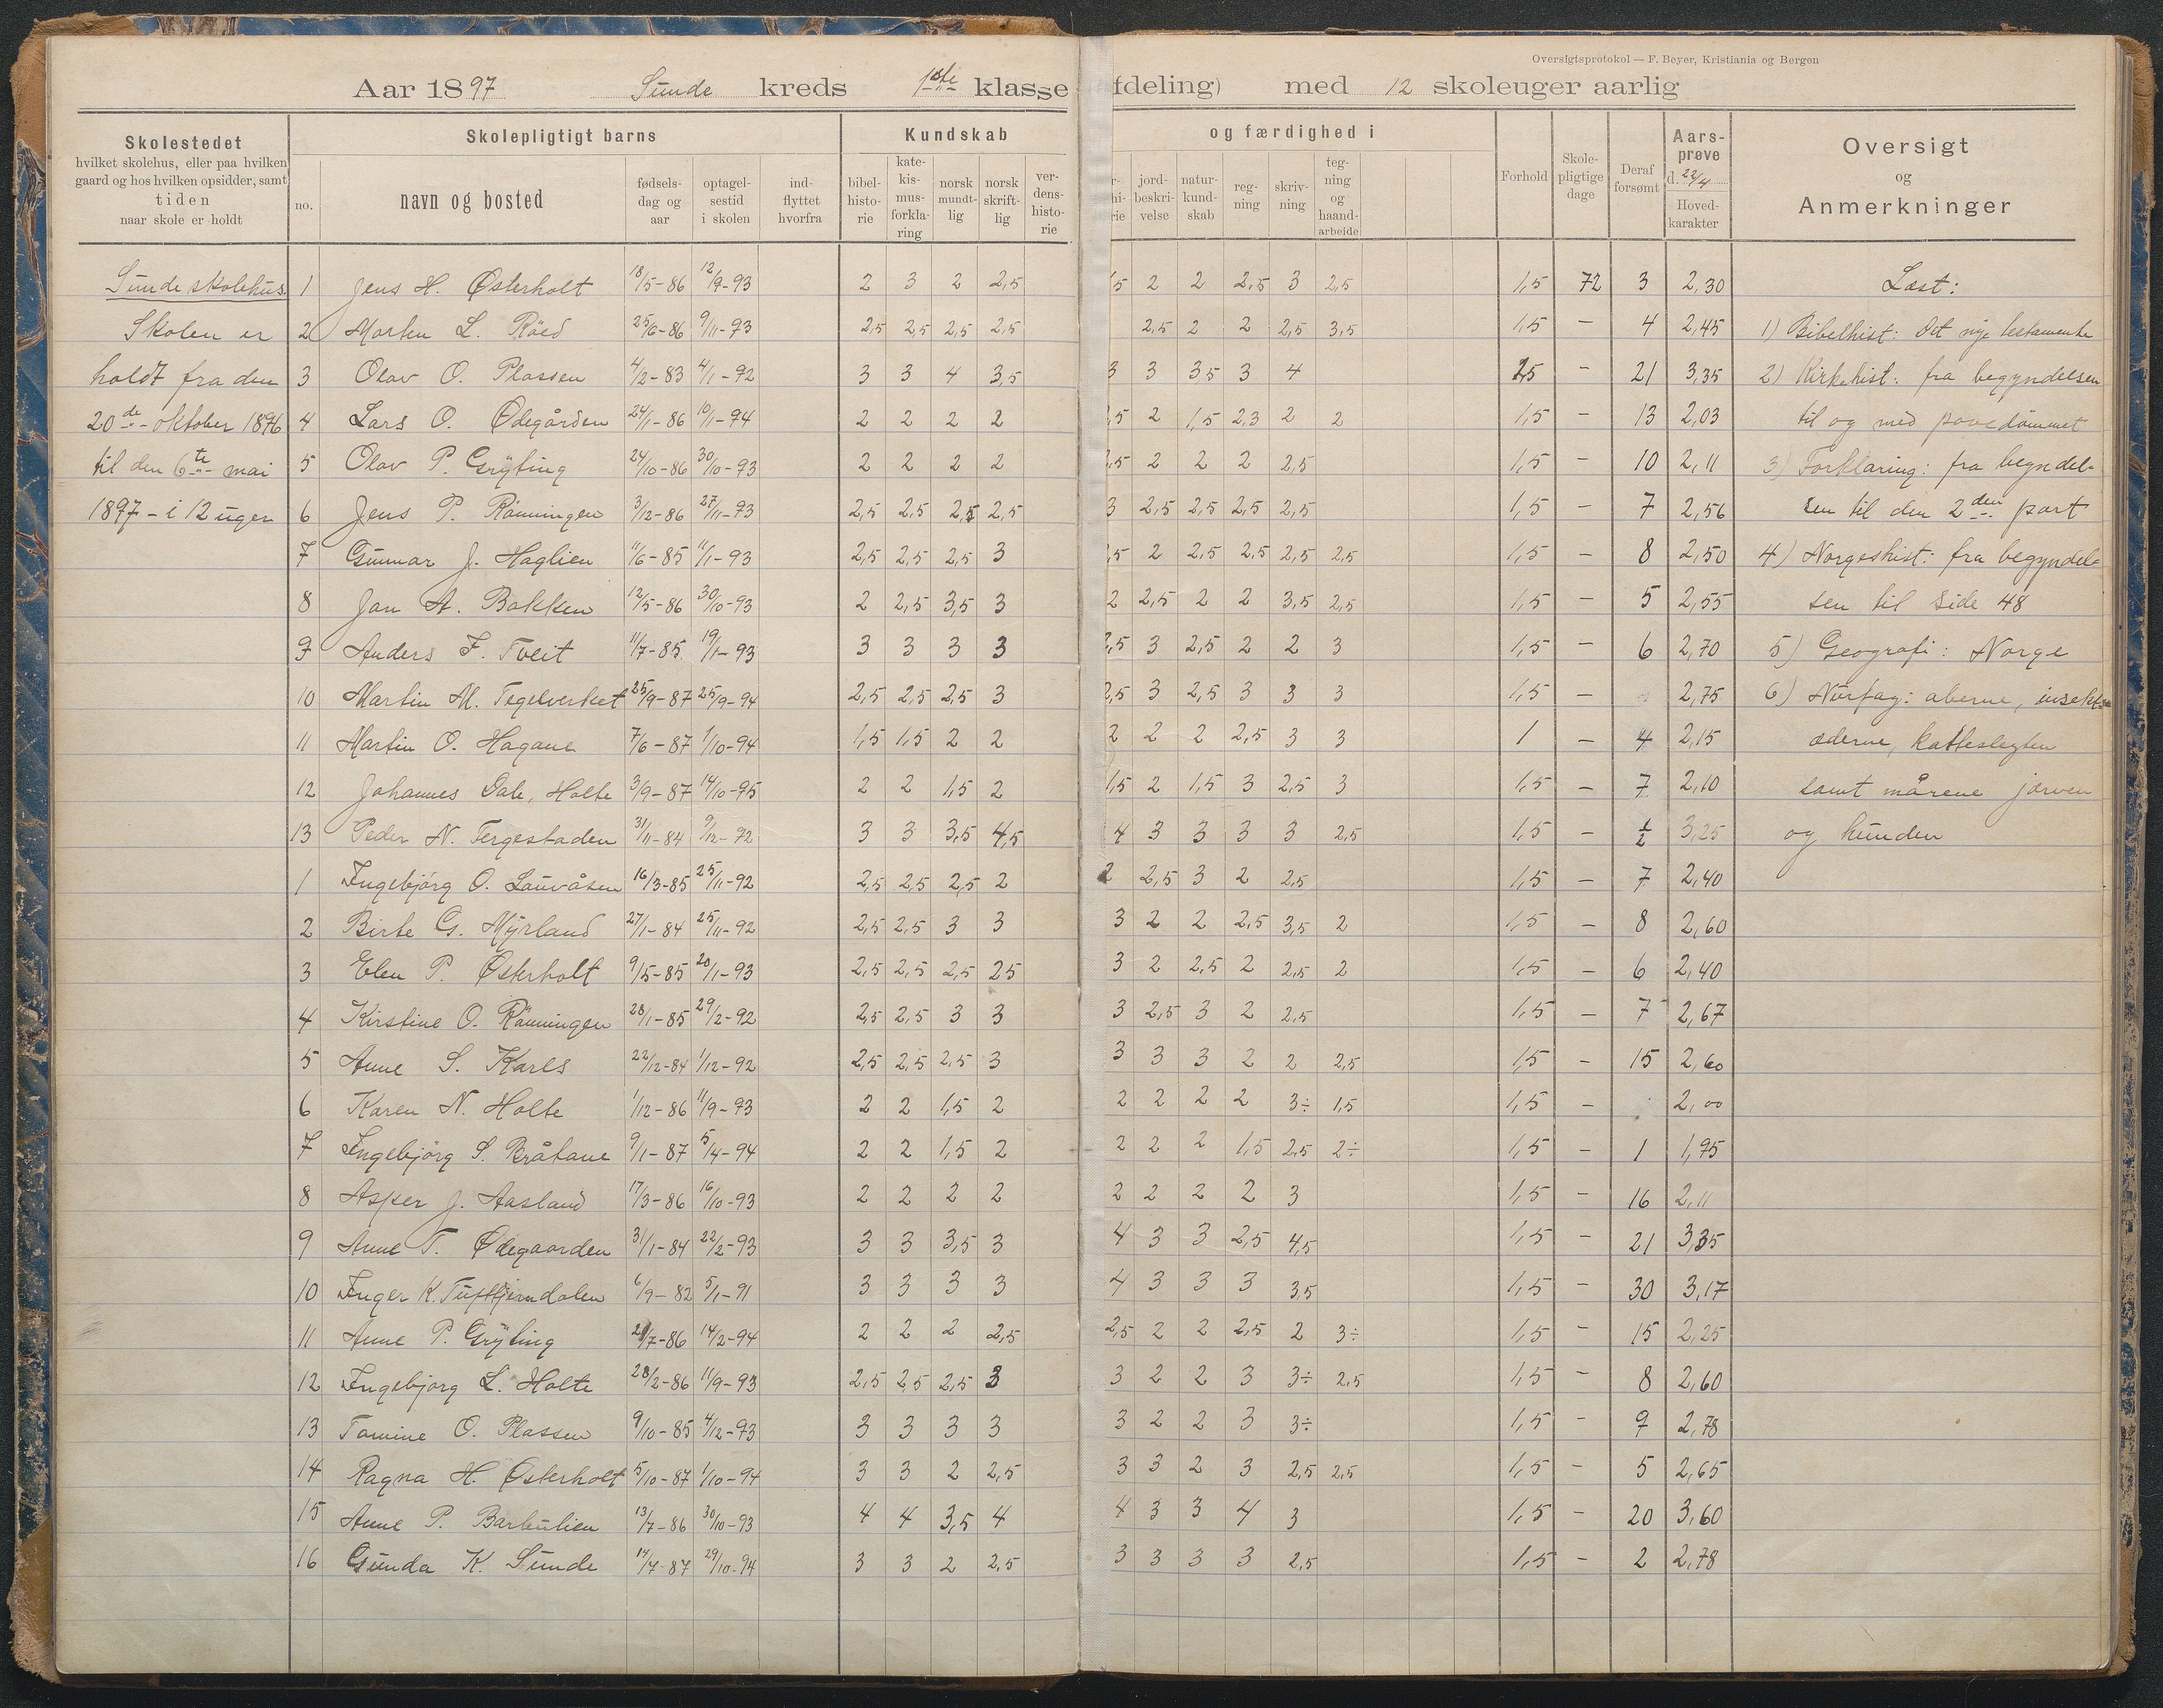 Oversigtsprotokol — F. Beyer, Kristiania og Bergen
Aar 1897 Sunde kreds 1ste klasse fdeling) med 12 skoleuger aarlig
Skolestedet
hvilket skolehus, eller paa hvilken
gaard og hos hvilken opsidder, samt
tiden
naar skole er holdt
Skolepligtigt barns
no.
navn og bosted
fødsels-
dag og
aar
optagel-
sestid
i skolen
ind-
flyttet
hvorfra
Kundskab
bibel-
histo-
rie
kate-
kis-
mus-
forkla-
ring
norsk
mundt-
lig
norsk
skrift-
lig
ver-
dens-
histo-
rie
og færdighed i
r-
hi-
rie
jord-
beskri-
velse
natur-
kund-
skab
reg-
ning
skriv-
ning
teg-
ning
og
haand-
arbeide
Forhold
Skole-
pligtige
dage
Deraf
forsømt
Aars-
prøve
d. 22/4
Hoved-
karakter
Oversigt
og
Anmerkninger
Sunde skolehus.
Skolen er
holdt fra den
20de oktober 1896
til den 6te mai
1897 – i 12 uger
1 Jens H. Østerholt 18/5-86 12/9-93 2 3 2 2,5 1,5 2 2 2,5 3 2,5 1,5 72 3 2,30
2 Morten L. Röed 25/6-86 9/11-93 2,5 2,5 2,5 2,5 2,5 2 2 2,5 3,5 1,5 – 4 2,45
3 Olav O. Plassen 4/2-83 4/1-92 3 3 4 3,5 3 3 3 5 3 4 2,5 – 21 3,35
4 Lars O. Ødegården 24/1-86 10/1-94 2 2 2 2 2,5 2 1,5 2,3 2 2 1,5 – 13 2,03
5 Olav P. Grÿting 24/10-86 30/10-93 2 2 2 2 2,5 2 2 2 2,5 1,5 – 10 2,11
6 Jens P. Rönningen 3/12-86 27/11-93 2,5 2,5 2,5 2,5 3 2,5 2,5 2,5 2,5 1,5 – 7 2,56
7 Gunnar J. Haglien 11/6-85 11/1-93 2,5 2,5 2,5 3 2,5 2 2,5 2,5 2,5 2,5 1,5 – 8 2,50
8 Jan A. Bakken 12/5-86 30/10-93 2 2,5 3,5 3 2 2,5 2 2 3,5 2,5 1,5 – 5 2,55
9 Anders F. Tveit 11/7-85 19/1-93 3 3 3 3 2,5 3 2,5 2 2 3 1,5 – 6 2,70
10 Martin M. Tegelverket 25/9-87 25/9-94 2,5 2,5 2,5 3 2,5 3 2,5 3 3 3 1,5 – 2,75
11 Martin O. Hagane 7/6-87 1/10-94 1,5 1,5 2 2 2 2 2 2,5 3 3 1 – 4 2,15
12 Johannes Dale, Holte 3/9-87 14/10-95 2 2 1,5 2 1,5 2 1,5 3 2,5 3 1,5 – 7 2,10
13 Peder N. Tergestaden 31/11-84 9/12-92 3 3 3,5 4,5 4 3 3 3 3 2,5 1,5 – 1/2 3,25
1 Ingebjörg O. Lauvåsen 16/3-85 25/11-92 2,5 2,5 2,5 2 2 2,5 3 2 2,5 1,5 – 7 2,40
2 Birte G. Mÿrland 27/1-84 25/11-92 2,5 2,5 3 3 3 2 2 2,5 3,5 2 1,5 – 8 2,60
3 Elen P. Østerholt 9/5-85 20/1-93 2,5 2,5 2,5 25 3 2 2,5 2 2,5 2 1,5 – 6 2,40
4 Kirstine O. Rönningen 28/1-85 29/2-92 2,5 2,5 3 3 3 2,5 3 2 2,5 1,5 – 7 2,67
5 Anne S. Karls 22/12-84 1/12-92 2,5 2,5 2,5 3 3 3 3 2 2 2,5 1,5 – 15 2,60
6 Karen N. Holte 1/12-86 11/9-93 2 2 1,5 2 2 2 2 2 3÷ 1,5 1,5 – 2,00
7 Ingebjörg S. Bråtane 9/1-87 5/4-94 2 2 1,5 2 2 2 2 1,5 2,5 2÷ 1,5 – 1 1,95
8 Asper J. Aasland 17/3-86 16/10-93 2 2 2 2 2 2 2 2 3 1,5 – 16 2,11
9 Anne T. Ødegaarden 31/1-84 22/2-93 3 3 3,5 3 4 3 3 2,5 4,5 1,5 – 21 3,35
10 Inger K. Tuftjerndalen 6/9-82 5/1-91 3 3 3 3 4 3 3 3 3,5 1,5 – 30 3,17
11 Anne P. Grÿting 2/7-86 14/2-94 2 2 2 2,5 2,5 2 2 2,5 2 3÷ 1,5 – 15 2,25
12 Ingebjörg L. Holte 28/2-86 11/9-93 2,5 2,5 2,5 3 3 2 2 3 3÷ 2,5 1,5 – 8 2,60
13 Tomine O. Plassen 9/10-85 4/12-93 3 3 3 3 3 2 2 3 3÷ 1,5 – 9 2,78
14 Ragna H. Østerholt 5/10-87 1/10-94 3 3 2 2,5 3 3 2 3 2,5 2,5 1,5 – 5 2,65
15 Anne P. Barbulien 13/7-86 30/10-93 4 4 3,5 4 4 3 3 4 3 1,5 – 20 3,60
16 Gunda K. Sunde 14/7-87 29/10-94 3 3 2 2,5 3 3 3 3 2,5 1,5 – 2 2,78
Læst:
1) Bibelhist: Det nye testamente
2) Kirkehist: fra begyndelsen
til og med pavedömmet
3) Forklaring: fra begyndel-
sen til den 2den part
4) Norgeshist: fra begyndel-
sen til side 48
5) Geografi: Norge
6) Nurfag: aberne, insekt-
æderne, katteslegten
samt mårene jærven
og hunden